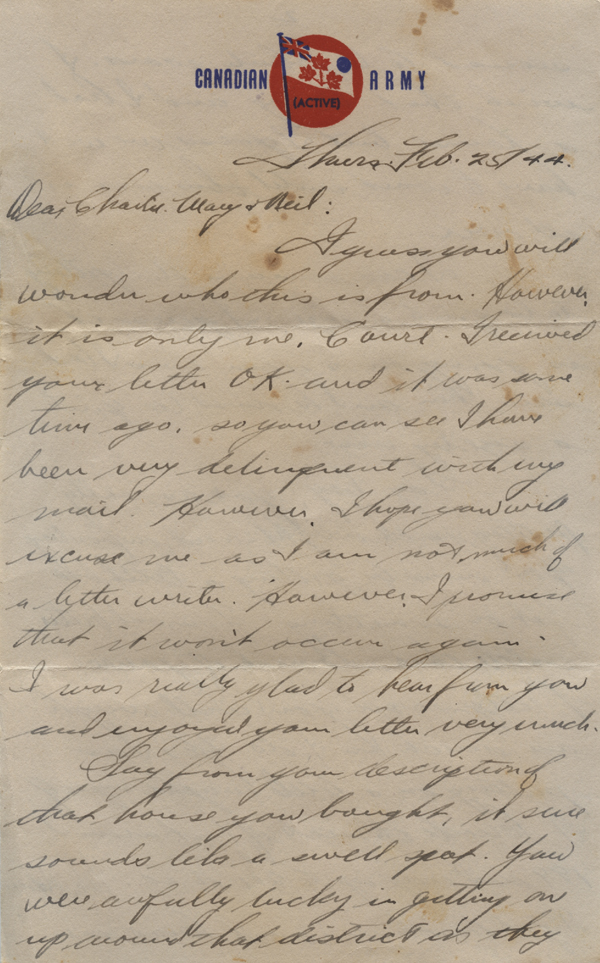 CANADIAN ARMY
(ACTIVE)
Thurs. Feb. 25/44.
Dear Charlie. Mary & Neil:
I guess you will
wonder who this is from. However,
it is only me, Court. I received
your letter OK. and it was some
time ago, so you can see I have
been very delinquent with my
mail. However, I hope you will
excuse me as I am not much of
a letter writer. However, I promise
that it won't occur again.
I was really glad to hear from you
and enjoyed your letter very much.
Say from your description of
that house you bought, it sure
sounds like a swell spot. You
were awfully lucky in getting on
up around that district as they